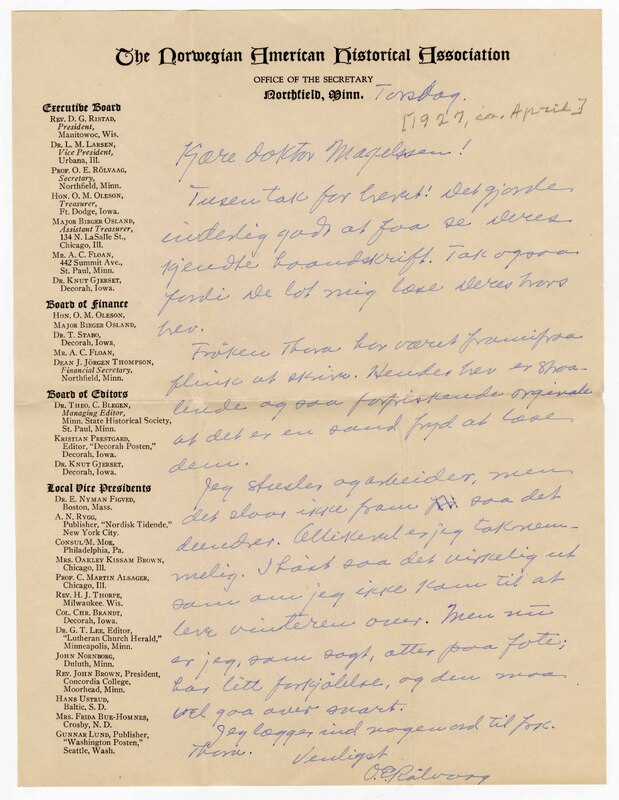 The Norwegian American Historical Association
OFFICE OF THE SECRETARY
Northfield, Minn. Torsdag.
[1927, ca. April]
Executive Board
REV. D. G. RISTAD,
President,
Manitowoc, Wis.
DR. L. M. LARSEN,
Vice President,
Urbana, Ill.
PROF. O. E. RÖLVAAG,
Secretary,
Northfield, Minn.
HON. O. M. OLESON,
Treasurer,
Ft. Dodge, Iowa.
MAJOR BIRGER OSLAND,
Assistant Treasurer,
134 N. LaSalle St.,
Chicago, Ill.
MR. A. C. FLOAN,
442 Summit Ave.,
St. Paul, Minn.
DR. KNUT GJERSET,
Decorah, Iowa.
Board of Finance
HON. O. M. OLESON,
MAJOR BIRGER OSLAND,
DR. T. STABO,
Decorah, Iowa,
MR. A. C. FLOAN,
DEAN J. JÖRGEN THOMPSON,
Financial Secretary,
Northfield, Minn.
Board of Editors
DR. THEO. C. BLEGEN,
Managing Editor,
Minn. State Historical Society,
St. Paul, Minn.
KRISTIAN PRESTGARD,
Editor, "Decorah Posten,"
Decorah, Iowa.
DR. KNUT GJERSET,
Decorah, Iowa.
Local Vice Presidents
DR. E. NYMAN FIGVED,
Boston, Mass.
A. N. RYGG,
Publisher, "Nordisk Tidende,"
New York City.
CONSUL M. MOE,
Philadelphia, Pa.
MRS. OAKLEY KISSAM BROWN,
Chicago, Ill.
PROF. C. MARTIN ALSAGER,
Chicago, Ill.
REV. H. J. THORPE,
Milwaukee. Wis.
COL. CHR. BRANDT,
Decorah, Iowa.
DR. G. T. LEE, Editor,
"Lutheran Church Herald,"
Minneapolis, Minn.
JOHN NORNBORG,
Duluth, Minn.
REV. JOHN BROWN, President,
Concordia College,
Moorhead, Minn.
HANS USTRUD,
Baltic, S. D.
MRS. FRIDA BUE-HOMNES,
Crosby, N. D.
GUNNAR LUND, Publisher,
"Washington Posten,"
Seattle, Wash.
Kjære doktor Magelssen!
Tusen tak for brevet! Det gjorde
inderlig godt at faa se Deres
kjendte haandskrift. Tak ogsaa
fordi De lot mig læse Deres
brev.
Frøken Thora har været framifraa
flink at skrive. Hendes brev er
lende og saa forfriskende orginale
at det er en sand fryd at læse
dem.
Jeg stusler og arbeider, men
det sloar ikke fram saa det
dundrer. Allikevel er jeg taknem-
melig. I høst saa det virkelig ut
som om jeg ikke kom til at
leve vinteren over. Men nu
er jeg, som sagt, atter paa fote;
har litt forkjølelse, og den maa
vel gaa over snart.
Jeg lægger ind nogen ord til frk.
Thora. Venligst
O.E. Rölvaag